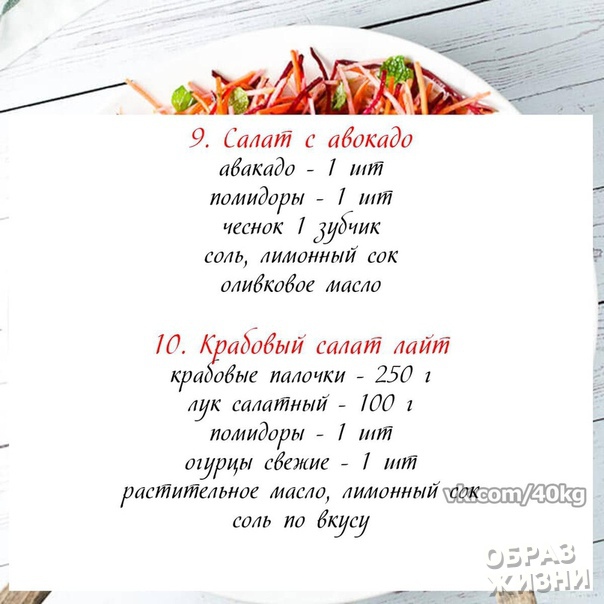 9. Салат с авокадо
авакадо - 1 шт
помидоры - 1 шт
чеснок 1 зубчик
соль, лимонный сок
оливковое масло
10. Крабовый салат лайт
крабовые палочки - 250 г
лук салатный - 100 г
помидоры - 1 шт
огурцы свежие - 1 шт
растительное масло, лимонный сок
соль по вкусу
vk.com/40kg
ОБРАЗ
ЖИЗНИ